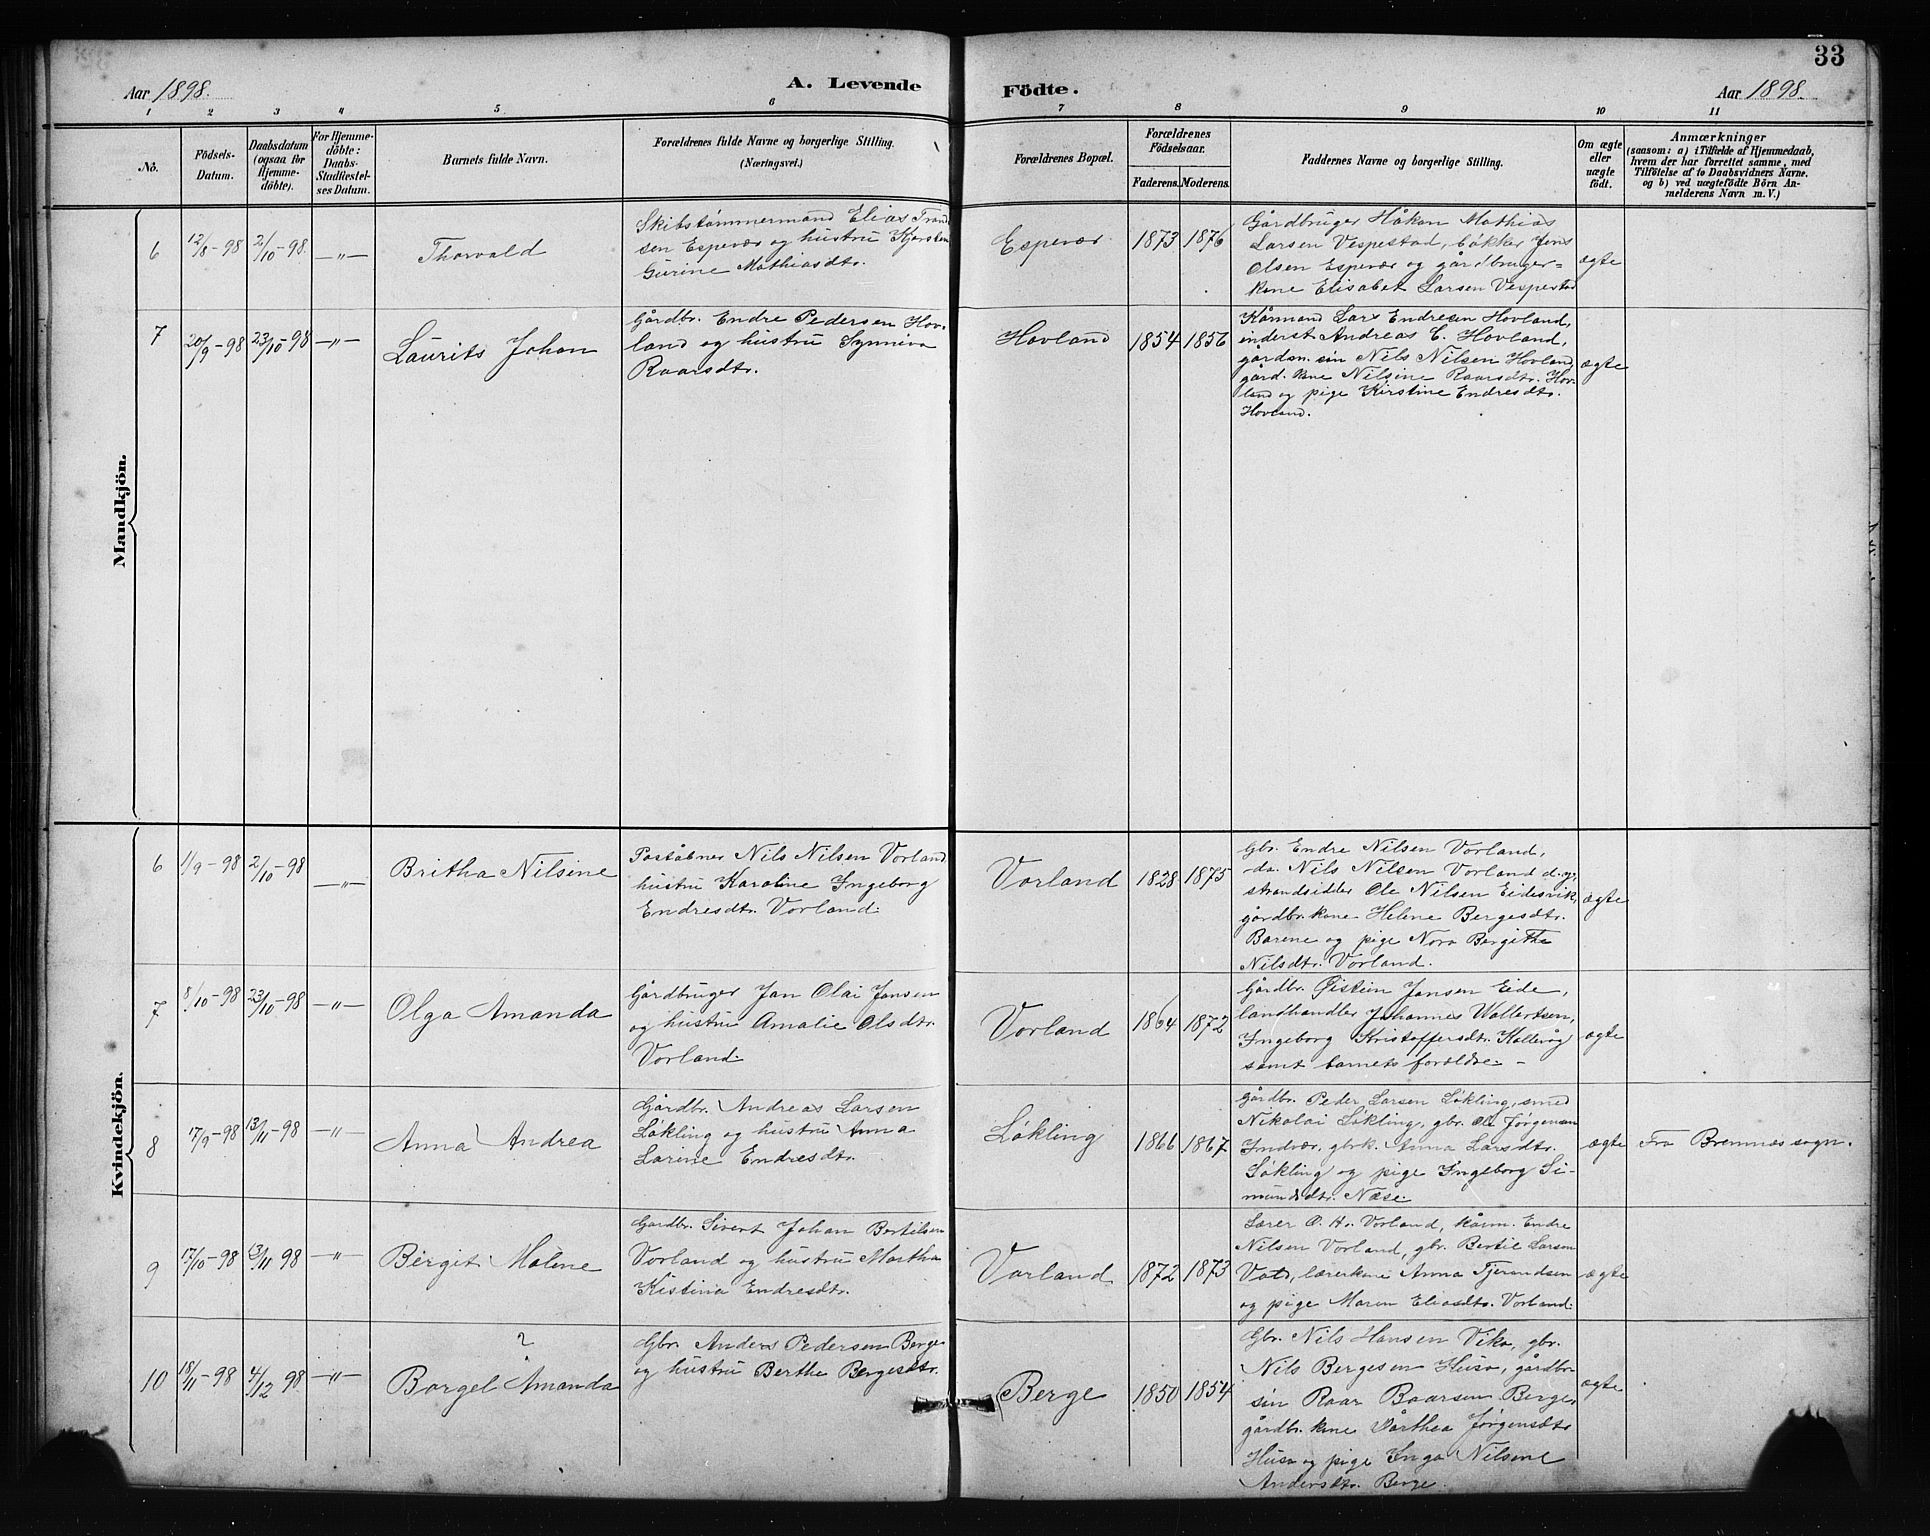 33
Aar 1898.
A. Levende
Födte.
Aar 1898.
1 2 3 4 5 6 7 8 9 10 11
No.
Födsels-
Datum.
Daabsdatum
(ogsaa for
Hjemme-
döbte).
For Hjemme-
döbte:
Daabs-
Stadfæstel-
ses Datum.
Barnets fulde Navn.
Forældrenes fulde Navne og borgerlige Stilling.
(Næringsvei.)
Forældrenes Bopæl.
Forældrenes
Födselsaar.
Faderens. Moderens.
Faddernes Navne og borgerlige Stilling.
Om ægte
eller
uægte
födt.
Anmærkninger
(saasom: a) i Tilfælde af Hjemmedaab,
hvem der har forrettet samme, med
Tilföielse af to Daabsvidners Navne,
og b) ved uægtefödte Börn An-
melderens Navn m. V.)
Mandkjön.
6
12/8-98
2/10-98.
-"-
Thorvald
Skibstømmermand Elias
sen Espevær og hustru
Gurine Mathiasdtr.
Espevær
1873 1876
Gårdbruger Håkon Mathias
Larsen Vespestad, bøkker Jens
Olsen Espevær og gårdbruger=
kone Elisabet Larsen Vespestad
ægte
7
20/9-98
23/10-98
-"-
Laurits Johan
Gårdbr. Endre Pedersen Hov-
land og hustru Synneva
Roarsdtr.
Hovland
1854 1856
Kårmand Lars Endresen Hovland,
inderst Andreas E. Hovland,
gårdm. søn Nils Nilsen Hovland,
gård. kone Nilsine Roarsdtr. Hov-
land og pige Kirstine Endresdtr.
Hovland.
ægte
Kvindekjön.
6
1/9-98
2/10-98
-"-
Britha Nilsine
Poståbner Nils Nilsen Vorland
hustru Karoline Ingeborg
Endresdtr. Vorland.
Vorland
1828 1875
Gbr. Endre Nilsen Vorland,
do. Nils Nilsen Vorland d.y.
strandsidder Ole Nilsen Eidesvik,
gårdbr. kone Helene Bergesdtr.
Barene og pige Nora Bergithe
Nilsdtr. Vorland.
ægte
7
8/10-98
23/10-98
-"-
Olga Amanda
Gårdbruger Jan Olai Jansen
og hustru Amalie Olsdtr.
Vorland.
Vorland
1864 1872
Gårdbr. Øistein Jansen Eide,
landhandler Johannes Wallertsen,
Ingeborg Kristoffersdtr. Kallevåg
samt barnets forældre. -
ægte
8
17/9-98
13/11-98
-"-
Anna Andrea
Gårdbr. Andreas Larsen
Løkling og hustru Anna
Larine Endresdtr.
Løkling
1866 1867
Gårdbr. Peder Larsen Løkling, smed
Nikolai Løkling, gbr. Ole Jørgensen
Indvær, gbrk. Anna Larsdtr.
Løkling og pige Ingeborg Si-
mundsdtr. Næse.
ægte
Fra Bremnes sogn.
9
17/10-98
13/11 98
-"-
Bergit Malene
Gardbr. Sivert Johan Bertilsen
Vorland og hustru Martha
Kistina Endresdtr.
Vorland
1872 1873
Lærer O. H. Vorland, kårm. Endre
Nilsen Vorland, gbr. Bertil Larsen
Våtø, lærerkone Anna Tjerandsen
og pige Maren Eliasdtr. Vorland.
ægte
10
18/11-98
4/12 98
-"-
?
Borgel Amanda
Gbr. Anders Pedersen Berge
og hustru Berthe Bergesdtr.
Berge
1850 1854
Gbr. Nils Hansen Vika, gbr.
Nils Bergesen Husa, gårdbr-
søn Roar Roarsen Berge,
gårdbr. kone Dårthea Jørgensdtr
Husa og pige Inga Nilsine
Andersdtr. Berge.
ægte